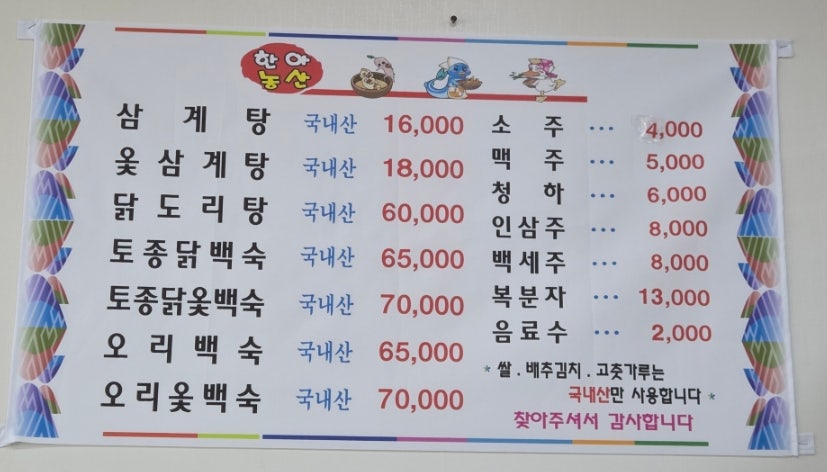 한아
농산
삼계탕 국내산 16,000
옻삼계탕 국내산 18,000
닭도리탕 국내산 60,000
토종닭백숙 국내산 65,000
토종닭옻백숙 국내산 70,000
오리백숙 국내산 65,000
오리옻백숙 국내산 70,000
소주 ··· 4,000
맥주 ··· 5,000
청하 ··· 6,000
인삼주 ··· 8,000
백세주 ··· 8,000
복분자 ··· 13,000
음료수 ··· 2,000
* 쌀 . 배추김치 . 고춧가루는
국내산만 사용합니다 *
찾아주셔서 감사합니다